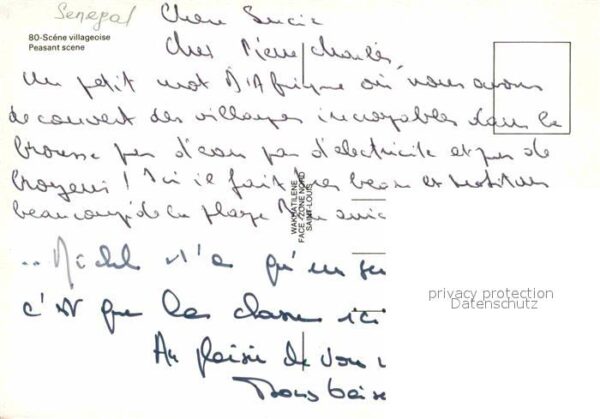 Senegal
80-Scéne villageoise
Peasant scene
Chère Lucie
Cher Pierre Charles,
Un petit mot d'Afrique où nous avons
decouvert des villages incroyables dans la
brousse pas d'eau pas d'electricité et pas de
Ici il fait très beau et
beaucoup de la plage
WAKHATILENE
FACE - ZONE NORD
SAINT-LOUIS
.. Michel n'a qu'un
c'est que les classes ici
Au plaisir de vous
Nous
privacy protection
Datenschutz